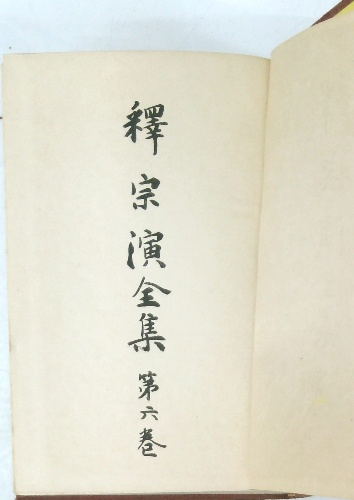 釋宗演全集 第六巻